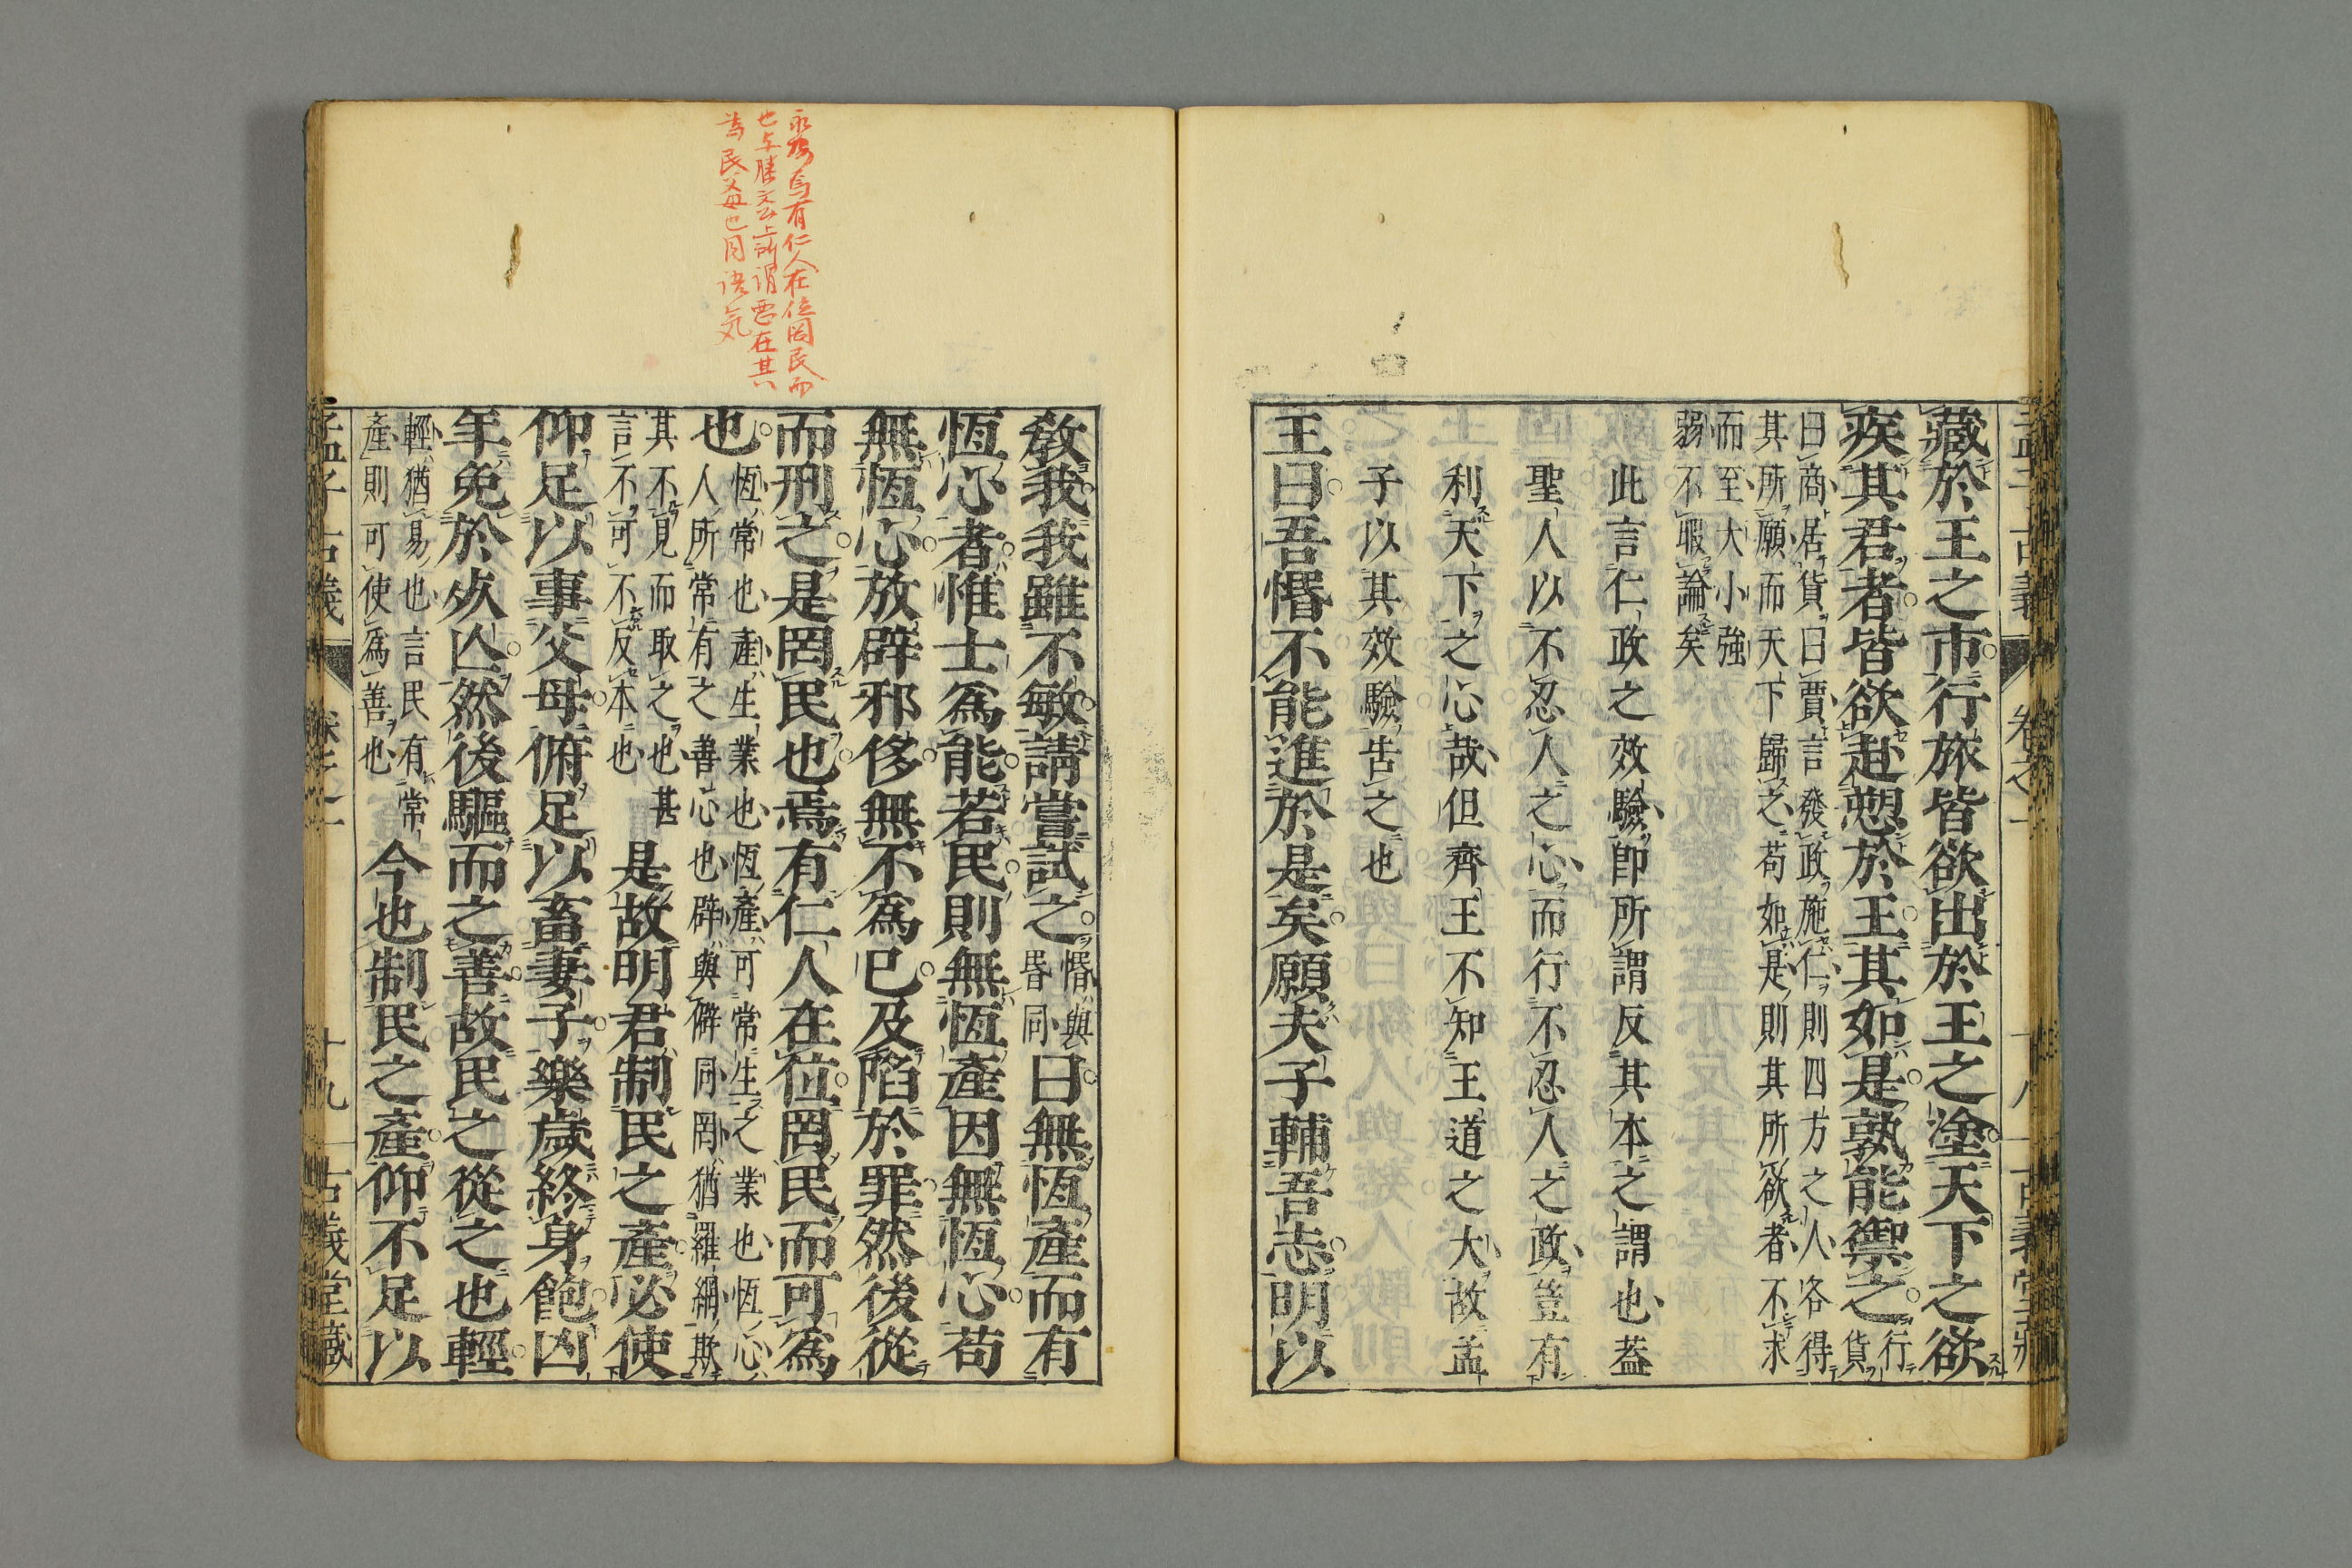 藏於王之市行旅皆欲出於王之塗天下之欲
疾其君者皆欲赴愬於王其如是孰能禦之
行
貨
曰商居貨曰賈言發政施仁則四方之人各得
其所願而天下歸之苟如是則其所欲者不求
而至大小強
弱不暇論矣
此言仁政之效驗卽所謂反其本之謂也蓋
聖人以不忍人之心而行不忍人之政豈有
利天下之心哉但齊王不知王道之大故孟
子以其效驗告之也
王曰吾惛不能進於是矣願夫子輔吾志明以
教我我雖不敏請嘗試之
惛與
昏同
曰無恆產而有
恆心者惟士爲能若民則無恆產因無恆心苟
無恆心放辟邪侈無不爲已及陷於罪然後從
而刑之是罔民也焉有仁人在位罔民而可爲
也
恆常也產生業也恆產可常生之業也恆心
人所常有之善心也辟與僻同罔猶羅網欺
其不見而取之也甚
言不可不反本也
是故明君制民之產必使
仰足以事父母俯足以畜妻子樂歲終身飽凶
年免於死亾然後驅而之善故民之從之也輕
輕猶易也言民有常
產則可使爲善也
今也制民之產仰不足以
孟子古義 卷之一 十九 古義堂藏
焉有仁人在位罔民而
也与滕文公上所謂惡在其
為民父母也同語気